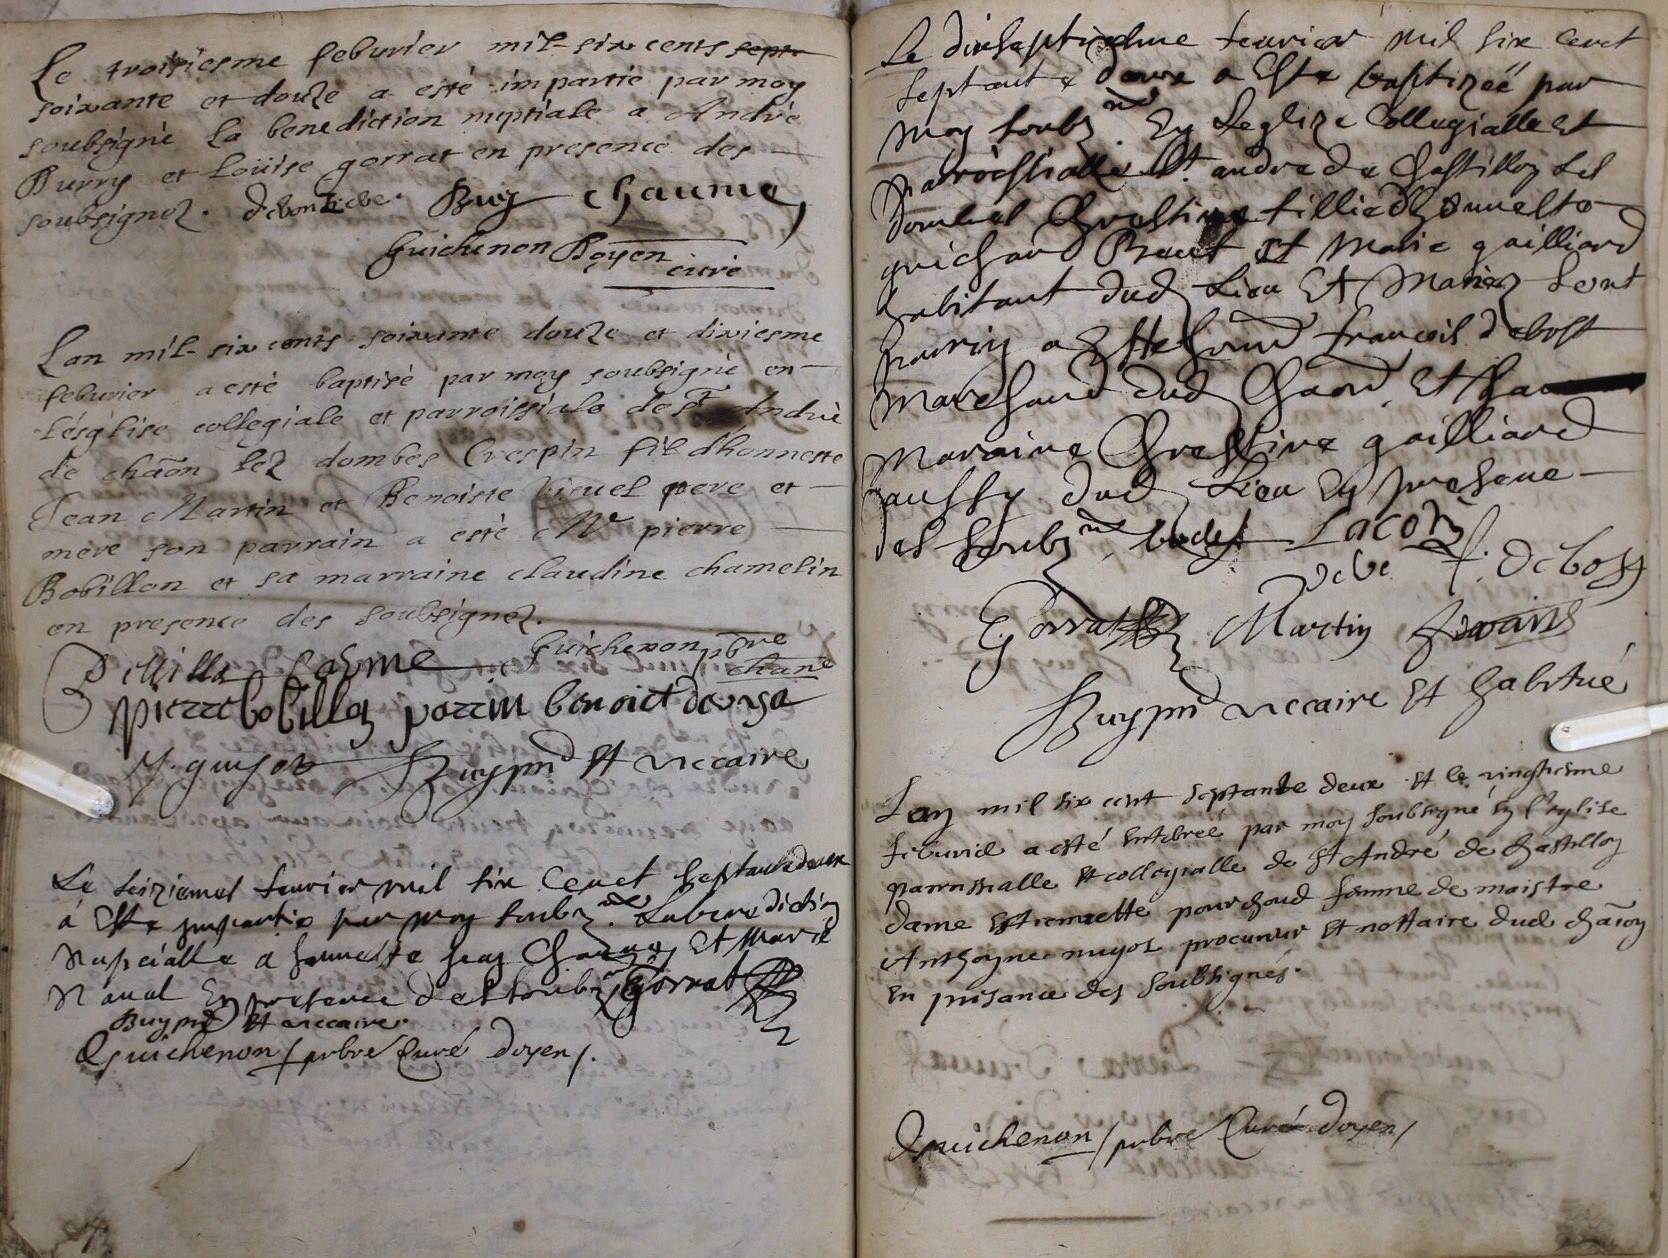 Le troisiesme feburier mil six cents sept
soixante et douze a esté impartie par moy
soubsigné la benediction nuptiale a André
Burry et Loüise gorrat en presence des
soubsignez. Buy chaume
Guichenon Doyen
curé
Lan mil six cents soixante douze et dixiesme
feburier a esté baptisé par moy soubsigné en
l'esglise collegiale et parroissiale de st André
de chaōn lez dombes Crespin fil dhonneste
Jean Martin et Benoiste pere et
mere son parrain a esté Me pierre
Bobillon et sa marraine claudine chamelin
en presence des soubsignez.
Guichenon pbre
chane
pierre bobillon perrin benoict
M. guyot Buy pnt et viccaire
Le seiziemes feurier mil six Cent septante deux
à Este impartie par moy soubzné La benediction
Nupcialle a honneste Jean Et Marie
Nauel En presence des soubznés Gorrat
Buy pnt Et viccaire.
Guichenon / pbre Curé doyen /.
Le dixseptiesme feurier mil six Cent
septante deux a Este baptizeé par
moy soubzné En Leglize Collegialle Et
parrochialle St. andre de Chastillon Les
dombes Chrestine fillie dhonneste
guichard Et Marie gailliard
habitant dud Lieu Et Mariez Sont
parrin a Este francois debost
Marchand dud Chaon Et
Maraine Chrestine gailliard
aussy dud Lieu En presence
des soubznés Lacoz
F. Debost
Gorrat Martin
Buy pnt viccaire Et habitué
Lan mil six cent septante deux et le vingtiesme
feburié a esté enterreé par moy soubsigné en l'eglise
parrossialle et collegialle de st André de chastillon
dame estiennette pourchoud femme de maistre
Anthoyne nuyot procureur et nottaire dud chaōn
en presance des soubsignés.
Guichenon / pbre Curé doyen /